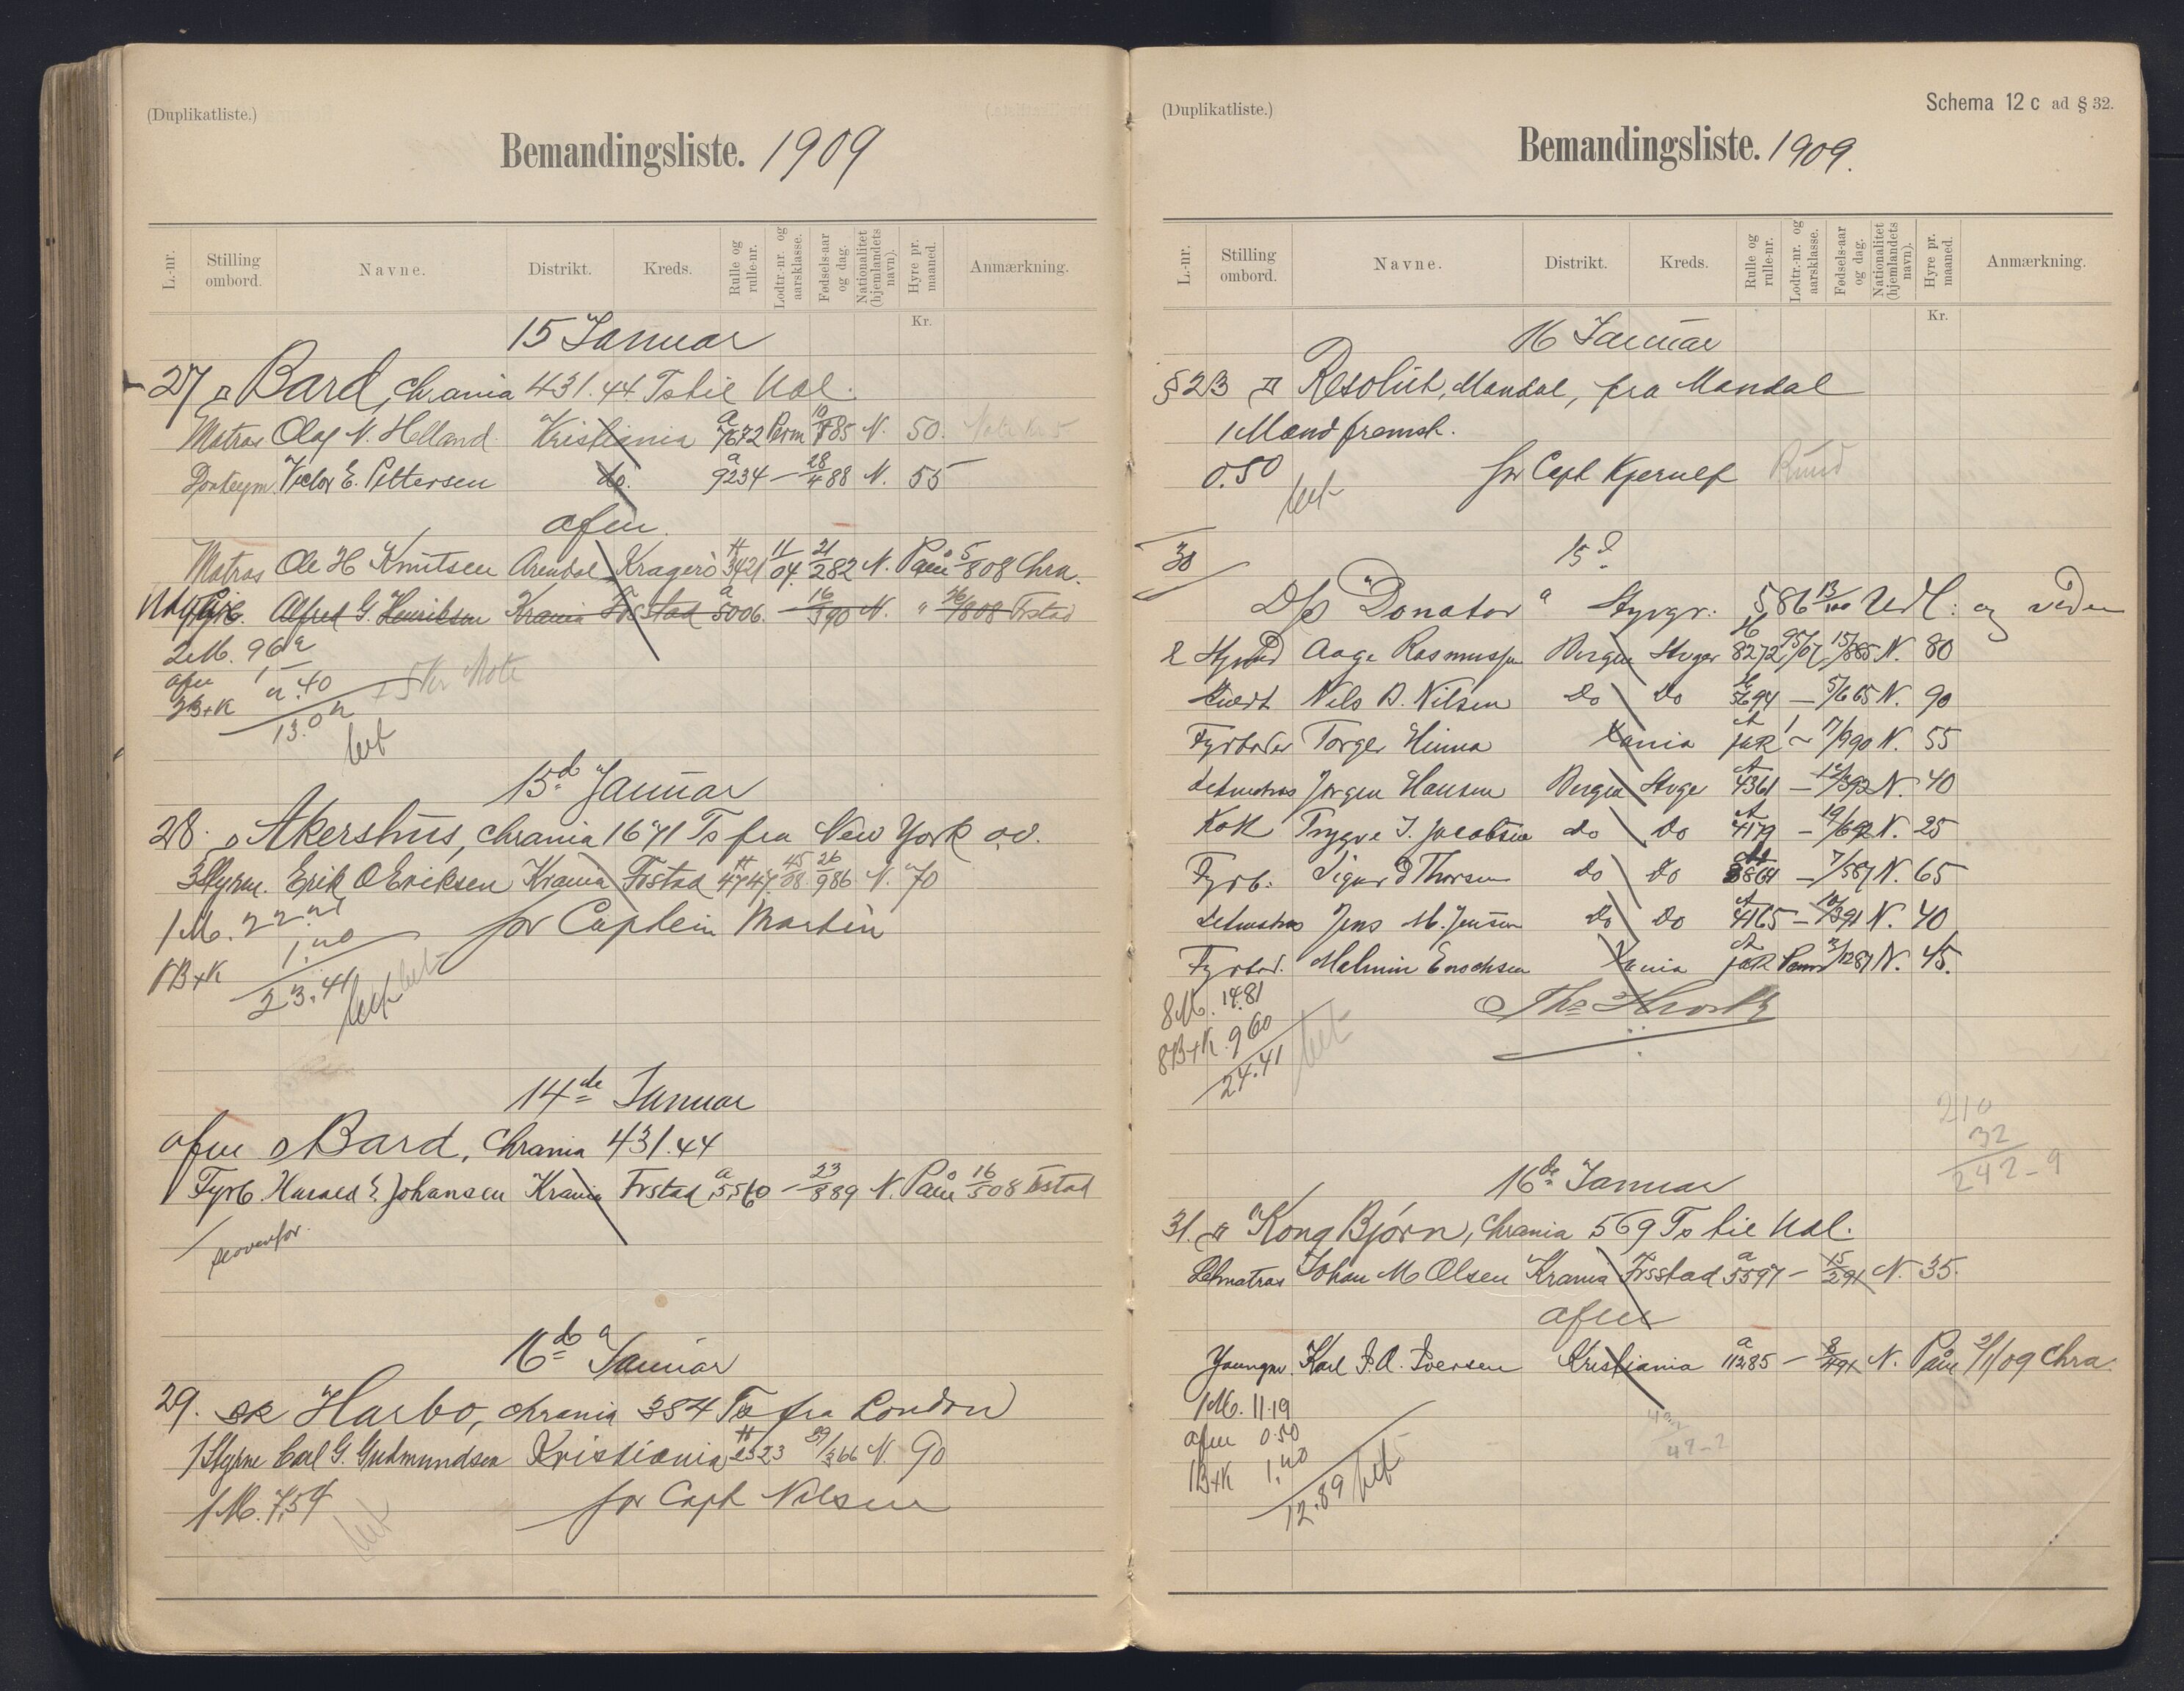 (Duplikatliste.)
Bemandingsliste. 1909
L.-nr.
Stilling ombord.
Navne.
Distrikt.
Kreds.
Rulle og rulle-nr.
Lodtr.-nr. og aarsklasse.
Fødsels-aar og dag.
Nationalitet (hjemlandets navn).
Hyre pr. maaned.
Anmærkning.
Kr.
15 Januar
27 Bard, Chrania 431.44 Ts til Ual.
Matros Olaf N. Helland Kristiania a 7672 Perm 10/885 N. 50.
Victor E. Pettersen do. a 9234 — 28/488 N. 55
afm.
Matros Ole H Knutsen Arendal Kragerö H 3421 11/04 21/282 N. Paam 5/808 Chra.
Alfred G. Henriksen Krania Frsstad a 5006. — 16/390 N. " 26/808 Frstad
2 M. 96
afm 1 —
3B+K
13.0
15d Januar
28. Akershus, Chrania 1671 Ts fra New York o.v.
3 Styrm. Erik O Eriksen Krania Frstad H 4747 45/08 26/986 N. 70
1 M. 22
for Captein Martin
1B+K
23.41
14de Januar
afm Bard, Chrania 431.44
Fyrb. Harald E. Johansen Krania Frstad a 5560 — 23/889 N. Paam 16/508 Frstad
se ovenfor.
16d Januar
29. SK Harbo, Chrania 384 Ts fra London
1 Styrm Carl G. Gudmundsen Kristiania H 2323 29/366 N. 90
1 M. 7,54
for Capt Nilsen
(Duplikatliste.)
Schema 12 c ad § 32.
Bemandingsliste. 1909.
L.-nr.
Stilling ombord.
Navne.
Distrikt.
Kreds.
Rulle og rulle-nr.
Lodtr.-nr. og aarsklasse.
Fødsels-aar og dag.
Nationalitet (hjemlandets navn).
Hyre pr. maaned.
Anmærkning.
Kr.
16 Januar
§ 23 Resolut, Mandal, fra Mandal
1 Mand fremst.
0.50
for Capt Kjerulf
30
15d
D/s "Donator" Stvgr: 586 13/100 Udl: og viden
2 Styrmd Aage Rasmussen Bergen Stvger H 8272 95/07 15/885 N. 80
Nils B. Nilsen do do 5694 — 5/665 N. 90
Fyrbøder Torger Hinna Xania A 1/990 N. 55
Letmatros Jørgen Hansen Bergen Stvge A 4361 — 12/392 N. 40
Kok Trygve J. Jacobsen do do A 4179 — 19/692 N. 25
Fyrb. Sigurd Thorsen do do 7/587 N. 65
Letmatros Jens M. Jensen do do A 4165 — 10/391 N. 40
Fyrbd. Malmin Enochsen Xania Perm 3/1281 N. 45.
8 M. 14.81
8B+K. 9 60
24.41
210
32
242-9
16de Januar
31. Kong Bjørn, Chrania 569 Ts til Ual.
Letmatros Johan M Olsen Krania Frsstad a 5597 — 15/291 N. 35.
afm
Youngm. Karl J. A. Iversen Kristiania a 11285 — 8/491 N. Paam 2/1/09 Chra.
1 M. 11.19
afm 0.50
1B+K 1,20
12.89